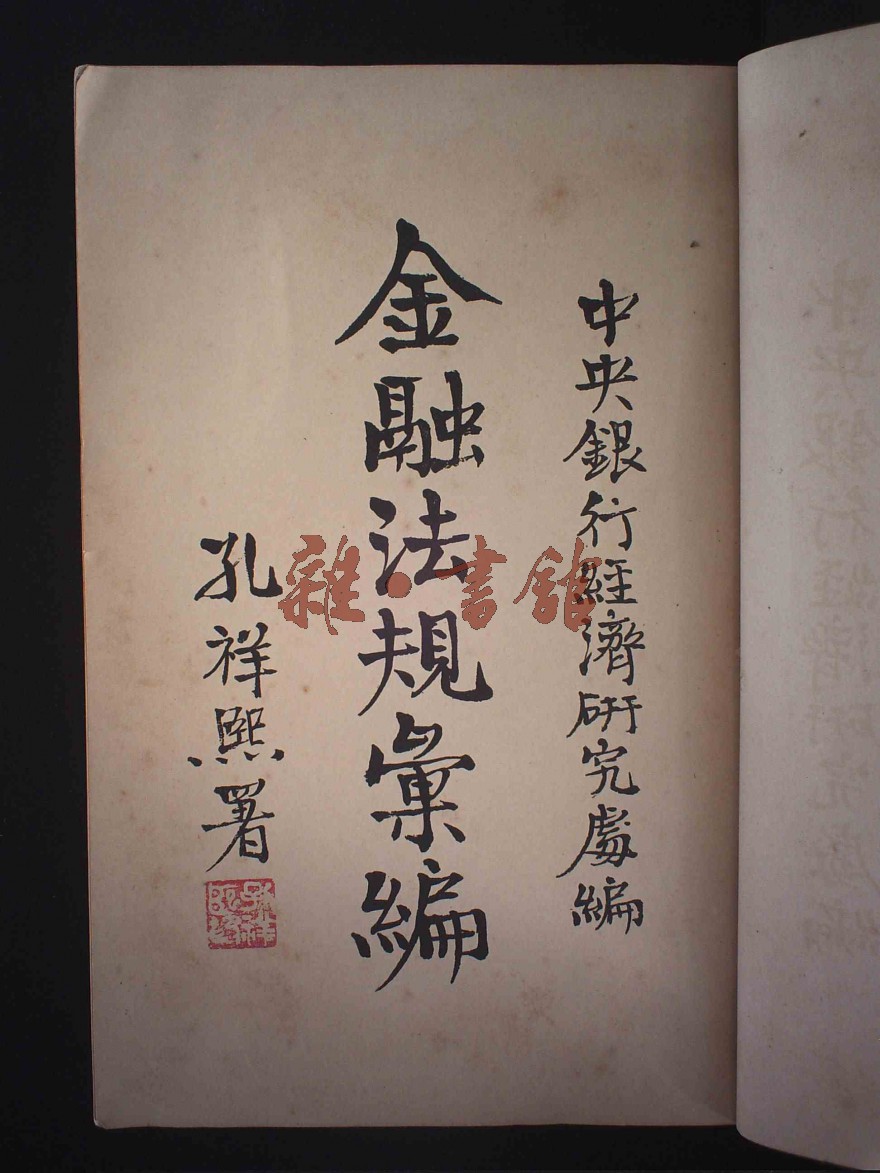 中央銀行經濟研究處編
金融法規彙編
孔祥熙署
雜·書館